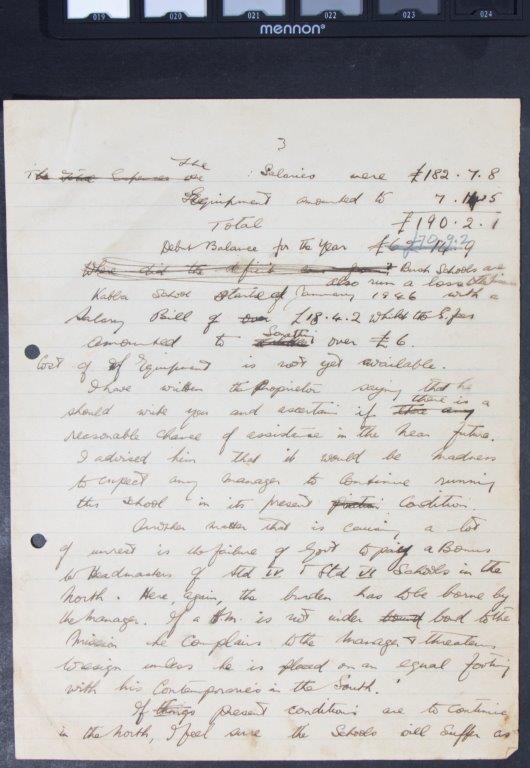 019 020 021 022 023 024
mennon®
3
The Total Expenses The : Salaries were £182.7.8
Equipment amounted to 7.14.5
Total £190.2.1
Debit Balance for the Year £70.9.2
Where did the deficit come from? Bush Schools are
also run a loss
Kabla School started January 1946 with a
Salary Bill of over £18.4.2 whilst the
amounted to over £6.
Cost of Equipment is not yet available.
I have written the Proprietor saying that he
should write you and ascertain if there any there is a
reasonable chance of assistance in the near future.
I advised him that it would be madness
to expect any manager to continue running
this School in its present condition.
Another matter that is causing a lot
of unrest is the failure of Govt to pay a Bonus
to Headmasters of Std IV & Std VI Schools in the
North. Here again, the burden has to be borne by
the Manager. If a H.M. is not under bound bond to the
Mission he complains to the Manager & threatens
to resign unless he is placed on an equal footing
with his Contemporaries in the South.
If things present conditions are to continue
in the North, I feel sure the Schools will suffer as